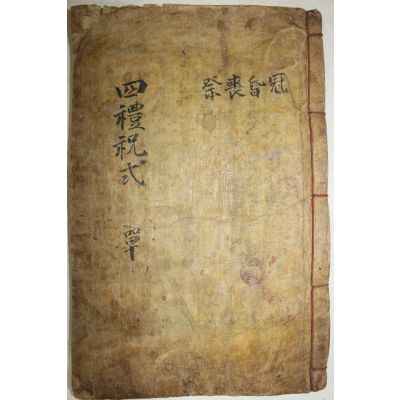 四禮祝式 單
冠昏喪祭